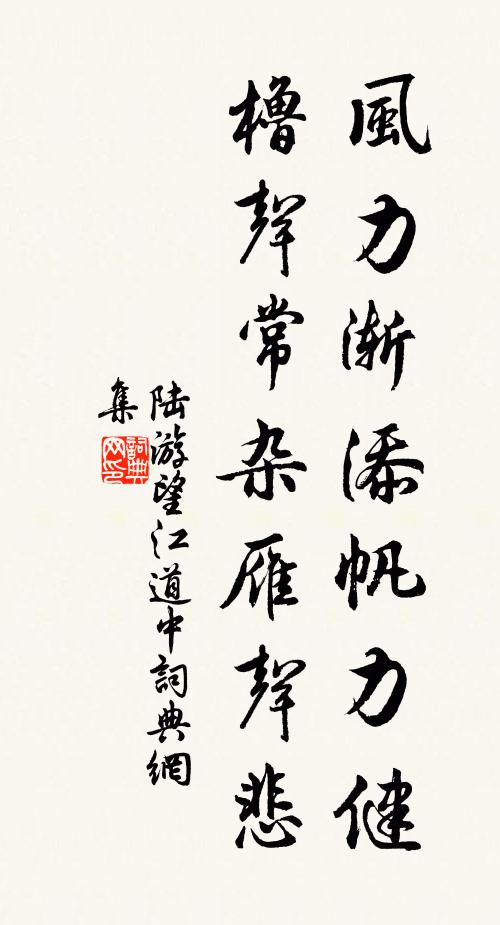 風力漸添帆力健
櫓聲常杂雁聲悲
陆游望江道中詞典網
集
詞典网印